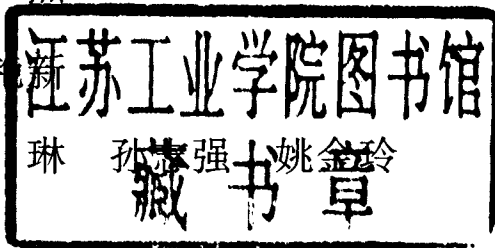 江苏工业学院图书馆
新
琳 孙 强 姚金玲
藏书章